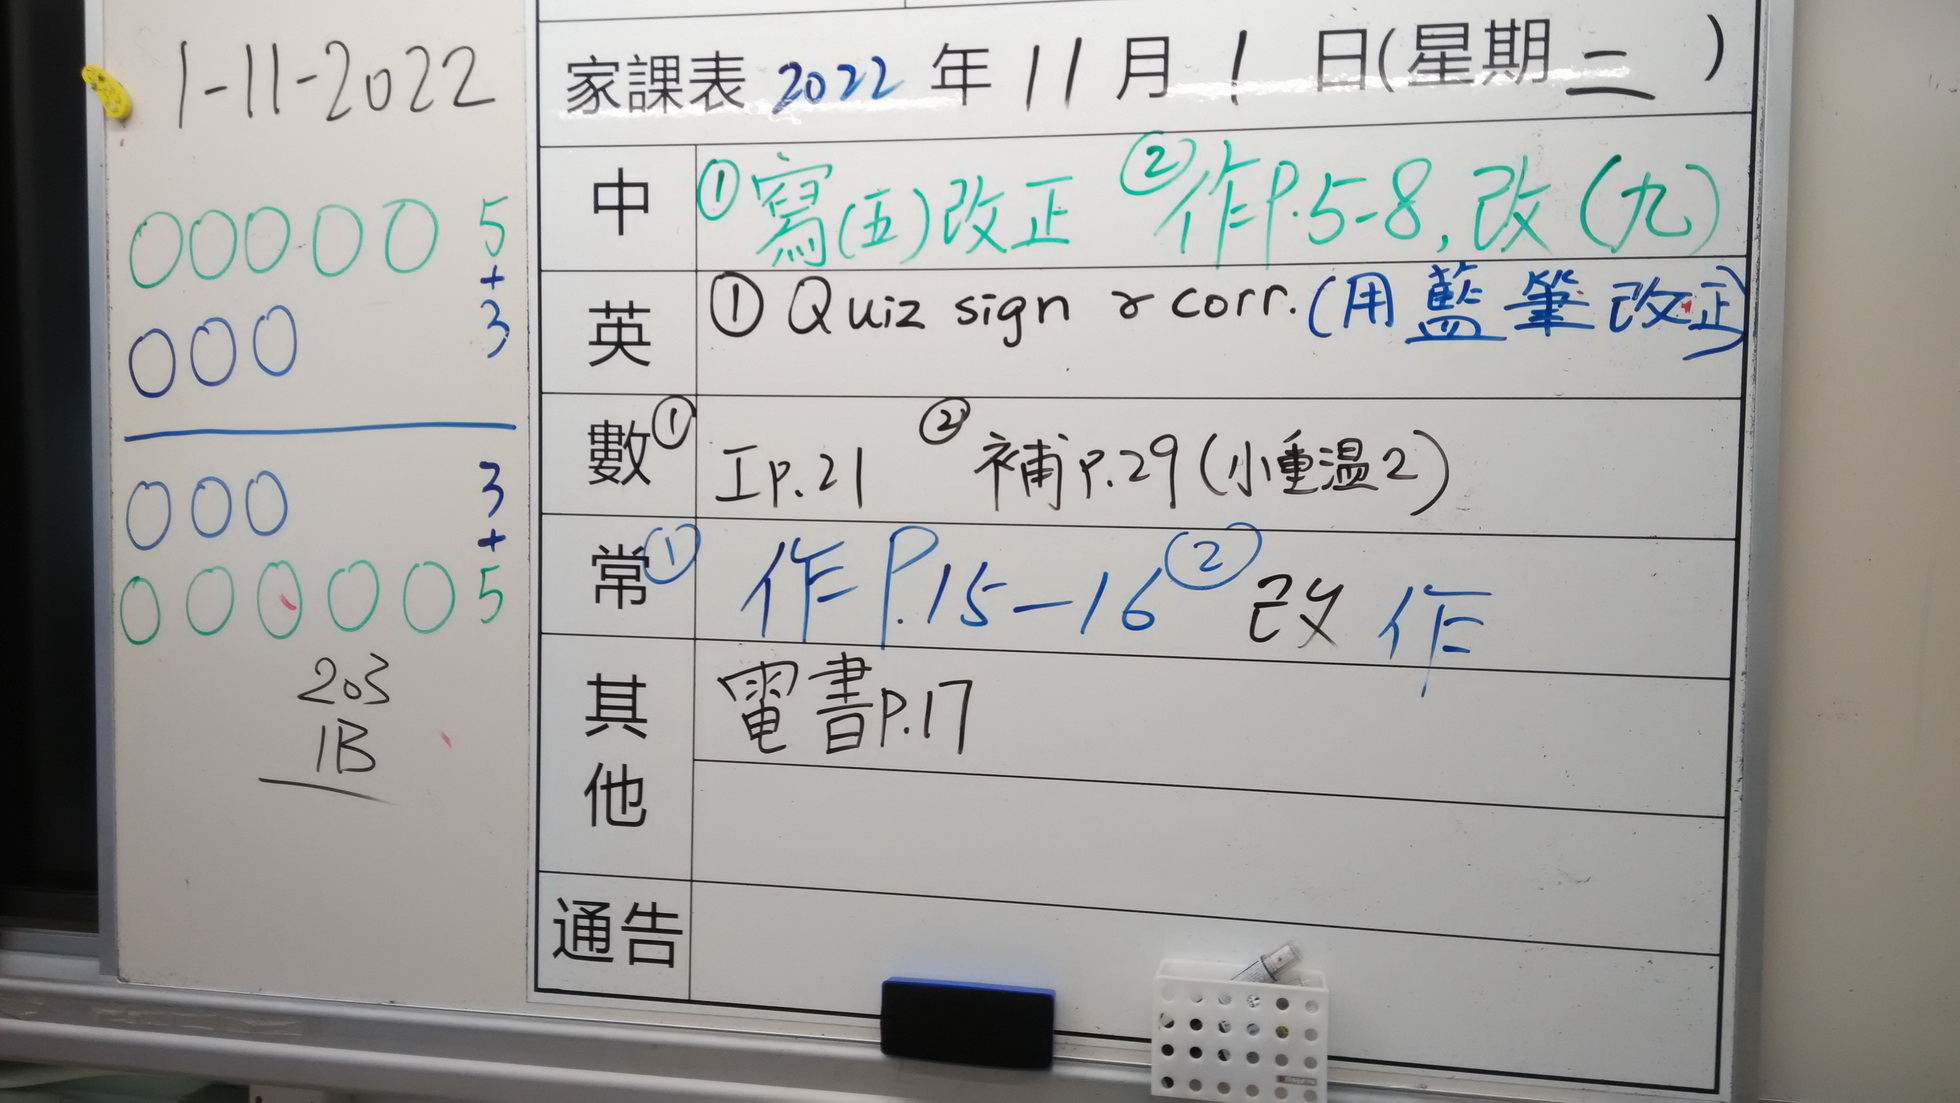 1-11-2022
5
+
3
3
+
5
203
1B
家課表 2022 年 11 月 1 日(星期二)
中 ①寫(五)改正 ②作P.5-8,改(九)
英 ① Quiz sign & corr.(用藍筆改正)
數 ① 工p.21 ② 補p.29(小重温2)
常 ① 作P.15-16 ② 改作
其他 電書P.17
通告